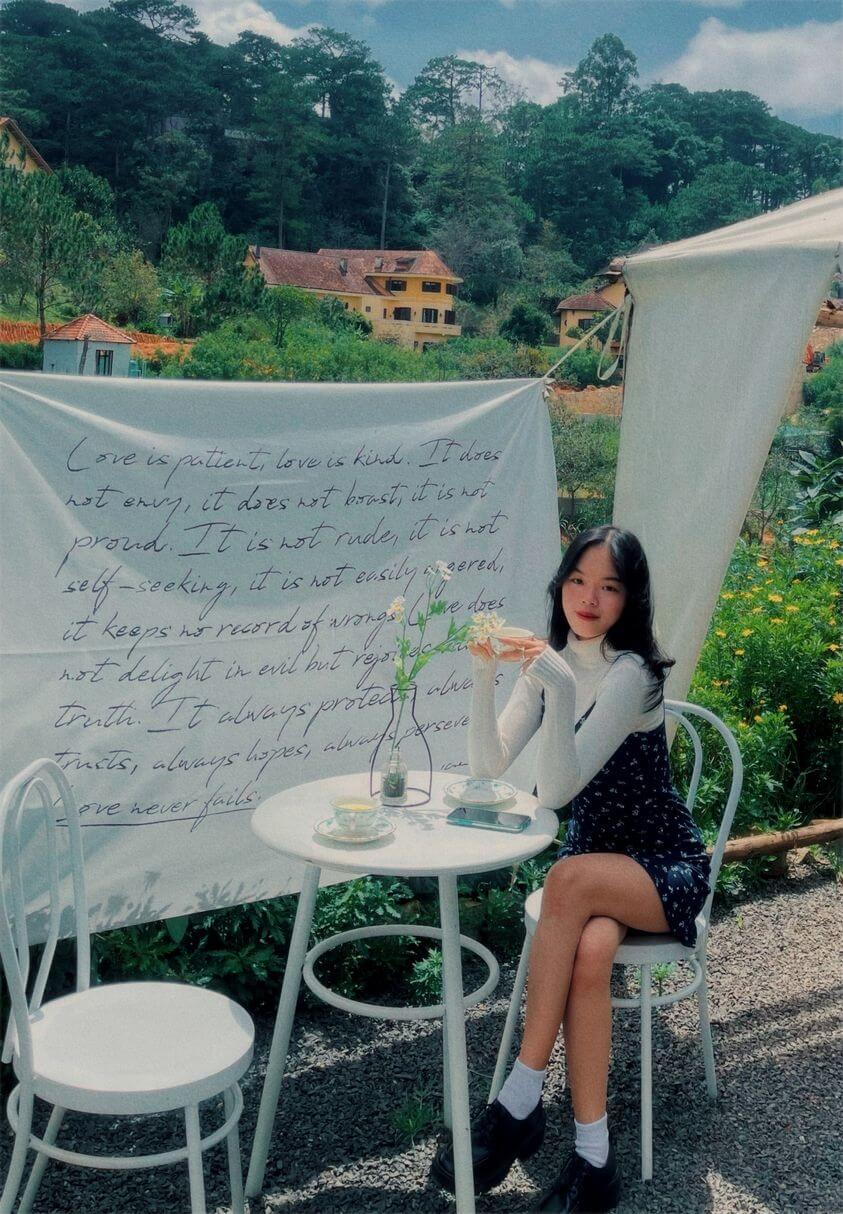 Love is patient, love is kind. It does
not envy, it does not boast, it is not
proud. It is not rude, it is not
self-seeking, it is not easily angered,
it keeps no record of wrongs. Love does
not delight in evil but rejoices
truth. It always protects, always
trusts, always hopes, always perseve
Love never fails.